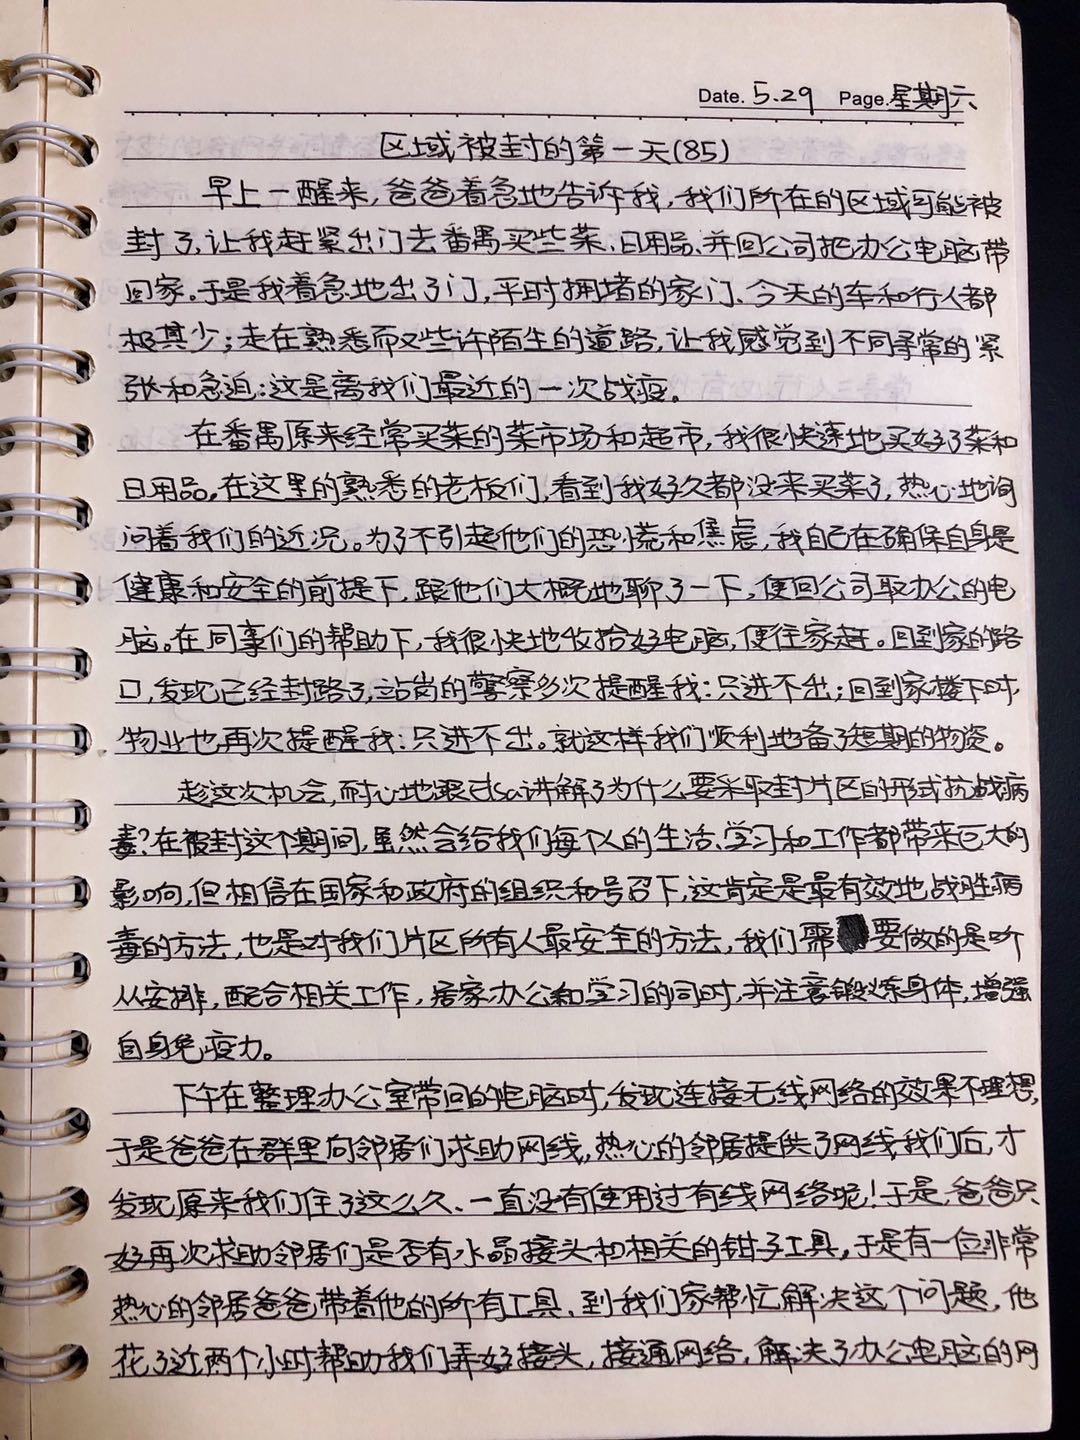 Date. 5.29 Page.星期六
区域被封的第一天(85)
早上一醒来,爸爸着急地告诉我,我们所在的区域可能被
封了,让我赶紧出门去番禺买些菜、日用品、并回公司把办公电脑带
回家。于是我着急地出了门,平时拥堵的家门、今天的车和行人都
极其少;走在熟悉而又些许陌生的道路,让我感觉到不同寻常的紧
张和急迫:这是离我们最近的一次战疫。
在番禺原来经常买菜的菜市场和超市,我很快速地买好了菜和
日用品。在这里的熟悉的老板们,看到我好久都没来买菜了,热心地询
问着我们的近况。为了不引起他们的恐慌和焦虑,我自己在确保自身是
健康和安全的前提下,跟他们大概地聊了一下,便回公司取办公的电
脑。在同事们的帮助下,我很快地收拾好电脑,便往家赶。回到家的路
口,发现已经封路了,站岗的警察多次提醒我:只进不出;回到家楼下时,
物业也再次提醒我:只进不出。就这样我们顺利地备了短期的物资。
趁这次机会,耐心地跟Elsa讲解了为什么要采取封片区的形式抗战病
毒?在被封这个期间,虽然会给我们每个人的生活、学习和工作都带来巨大的
影响,但相信在国家和政府的组织和号召下,这肯定是最有效地战胜病
毒的方法,也是对我们片区所有人最安全的方法,我们需要做的是听
从安排,配合相关工作,居家办公和学习的同时,并注意锻炼身体,增强
自身免疫力。
下午在整理办公室带回的电脑时,发现连接无线网络的效果不理想,
于是爸爸在群里向邻居们求助网线,热心的邻居提供了网线我们后,才
发现原来我们住了这么久、一直没有使用过有线网络呢!于是,爸爸只
好再次求助邻居们是否有水晶接头和相关的钳子工具,于是有一位非常
热心的邻居爸爸带着他的所有工具、到我们家帮忙解决这个问题,他
花了近两个小时帮助我们弄好接头,接通网络,解决了办公电脑的网